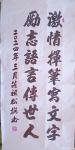 激情揮筆寫文字
勵志語言傳世人
二〇二四年三月